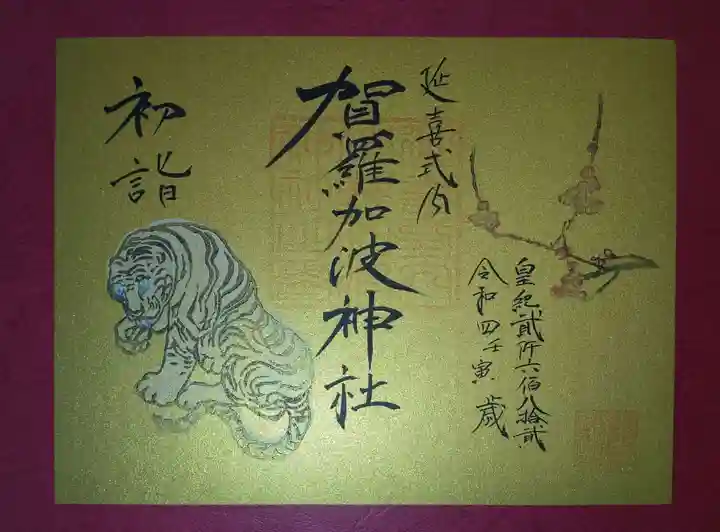 延喜式内
賀羅加波神社
初詣
皇紀貳阡六佰八拾貳
令和四壬寅歳